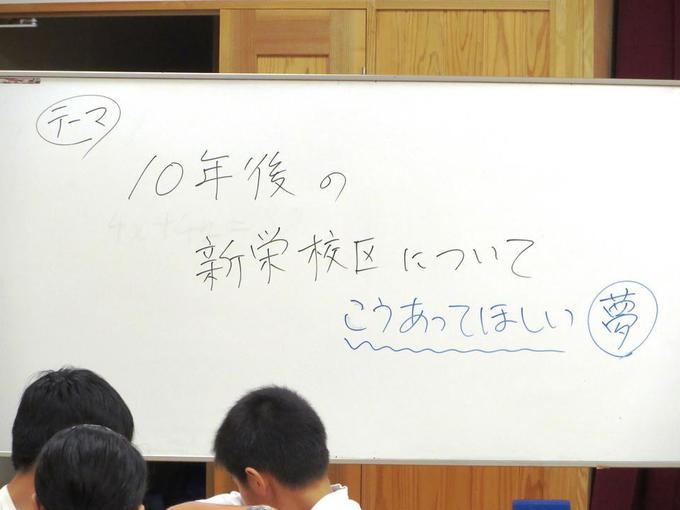 テーマ
10年後の
新栄校区について
こうあってほしい 夢